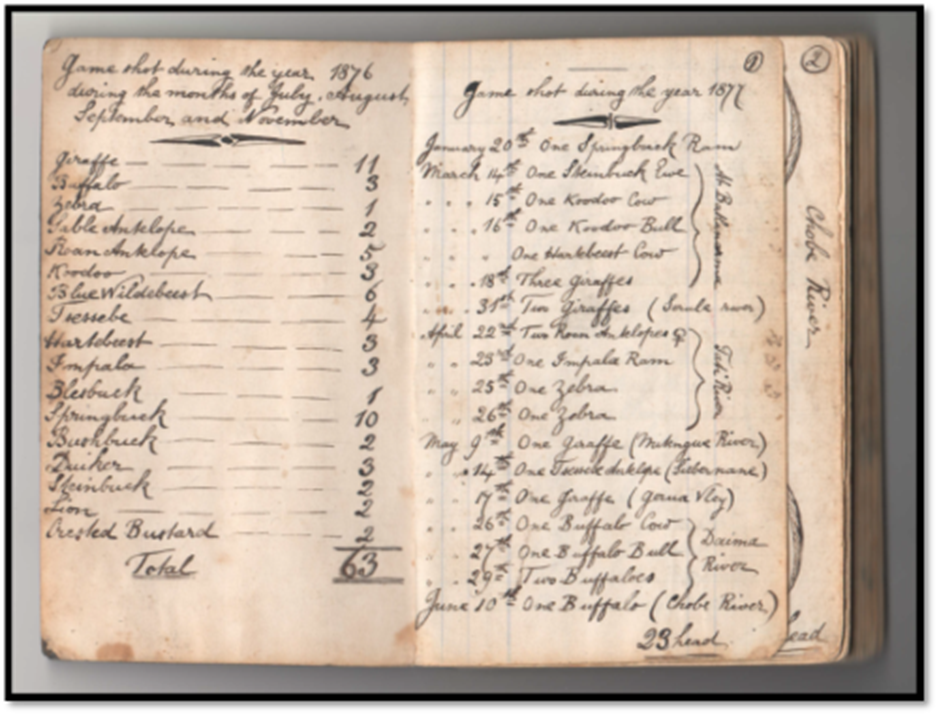 Game shot during the year 1876
during the months of July, August,
September and November
Giraffe 11
Buffalo 3
Zebra 1
Sable Antelope 2
Roan Antelope 5
Koodoo 3
Blue Wildebeest 6
Tsessebe 4
Hartebeest 3
Impala 3
Blesbuck 1
Springbuck 10
Bushbuck 2
Duiker 3
Steinbuck 2
Lion 2
Crested Bustard 2
Total 63
①
Game shot during the year 1877
January 20th One Springbuck Ram
March 14th One Steinbuck Ewe
" " 15th One Koodoo Cow
" " 16th One Koodoo Bull
" " One Hartebeest Cow
" " 18th Three Giraffes
At
" " 31st Two Giraffes ( river)
April 22nd Two Roan Antelopes ♀
" 23rd One Impala Ram
" 25th One Zebra
" 26th One Zebra
Tati River
May 9th One Giraffe ( River)
" " 14th One Antelope ()
" " 17th One Giraffe ( Vley)
" " 26th One Buffalo Cow
" " 27th One Buffalo Bull
" " 29th Two Buffaloes
Daima
River
June 10th One Buffalo (Chobe River)
23 head
②
Chobe River
ead